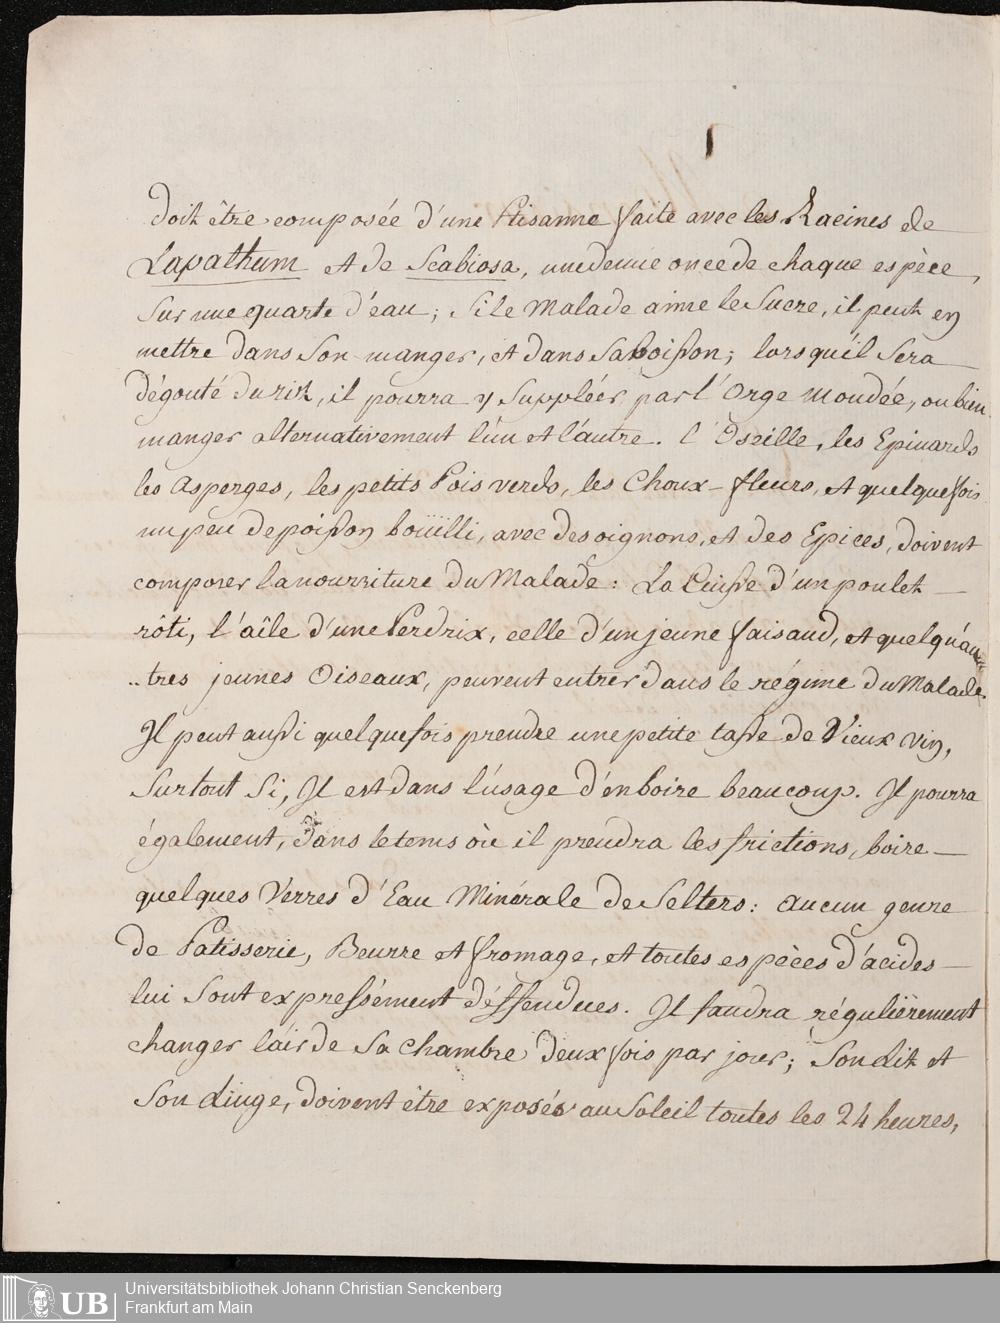 doit être composée d'une Ptisanne faite avec les Racines de
Lapathum et de Scabiosa, une demie once de chaque espèce,
sur une quarte d'eau; si le Malade aime le Sucre, il peut en
mettre dans son manger, et dans sa boisson; lorsqu'il sera
dégouté du riz, il pourra y suppléer par l'Orge mondée, ou bien
manger alternativement l'un et l'autre. l'Oseille, les Epinards
les Asperges, les petits Pois verds, les Choux-fleurs, et quelquefois
un peu de poisson bouïlli, avec des oignons, et des Epices, doivent
composer la nourriture du Malade: La Cuisse d'un poulet
rôti, l'aîle d'une Perdrix, celle d'un jeune faisand, et quelqu'au
..tres jeunes Oiseaux, peuvent entrer dans le régime du Malade.
Il peut aussi quelquefois prendre une petite tasse de Vieux vin,
surtout si, Il est dans l'usage d'en boire beaucoup. Il pourra
également, dans le tems où il prendra les frictions, boire
quelques Verres d'Eau Minérale de Selters: aucun genre
de Patisserie, Beurre et fromage, et toutes espèces d'acides
lui sont expressément déffendues. Il faudra régulièrement
changer l'air de sa chambre deux fois par jour; Son Lit et
Son Linge, doivent être exposés au Soleil toutes les 24 heures,
UB
Universitätsbibliothek Johann Christian Senckenberg
Frankfurt am Main